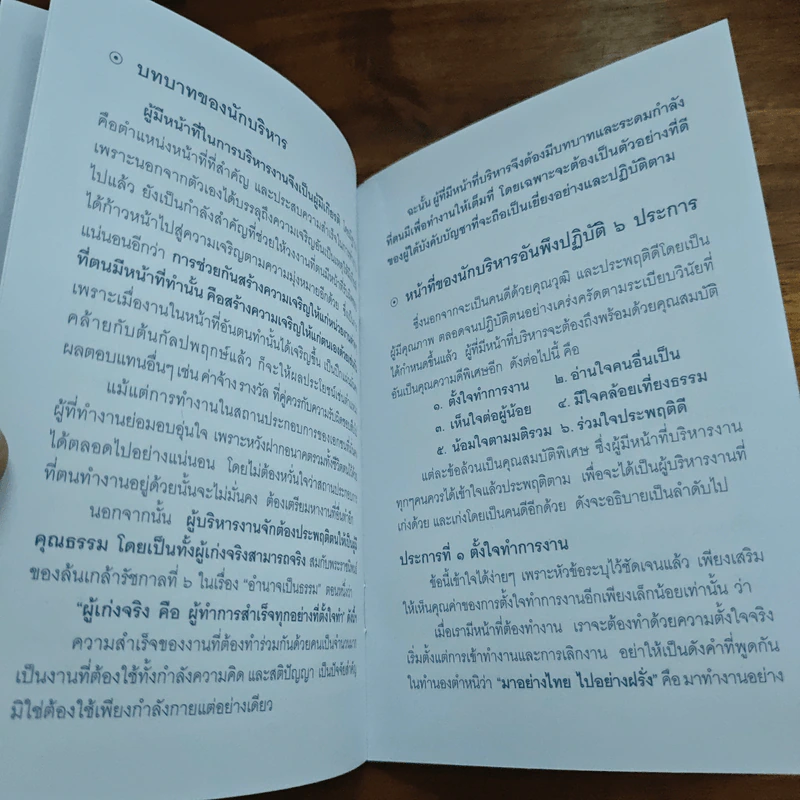 บทบาทของนักบริหาร
ผู้มีหน้าที่ในการบริหารงานจึงเป็นผู้มีเกียรติ
คือตำแหน่งหน้าที่ที่สำคัญ และประสบความสำเร็จในการ
เพราะนอกจากตัวเองได้บรรลุถึงความเจริญอันเป็น
ไปแล้ว ยังเป็นกำลังสำคัญที่ช่วยให้วงงานที่ตนมีหน้าที่
ได้ก้าวหน้าไปสู่ความเจริญตามความมุ่งหมายอีกด้วย
แน่นอนอีกว่า การช่วยกันสร้างความเจริญให้แก่หน่วยงาน
ที่ตนมีหน้าที่ทำนั้น คือสร้างความเจริญให้แก่ตนเอง
เพราะเมื่องานในหน้าที่อันตนทำนั้นได้เจริญขึ้น
คล้ายกับต้นกัลปพฤกษ์แล้ว ก็จะให้ผลประโยชน์เช่น
ผลตอบแทนอื่นๆ เช่น ค่าจ้าง รางวัล ที่คู่ควรกับความรับผิดชอบ
แม้แต่การทำงานในสถานประกอบการของเอกชน
ผู้ที่ทำงานย่อมอบอุ่นใจ เพราะหวังฝากอนาคตรวมทั้งชีวิต
ได้ตลอดไปอย่างแน่นอน โดยไม่ต้องหวั่นใจว่าสถานประกอบการ
ที่ตนทำงานอยู่ด้วยนั้นจะไม่มั่นคง ต้องเตรียมหางานที่อื่น
นอกจากนั้น ผู้บริหารงานจักต้องประพฤติตนให้เป็นผู้มี
คุณธรรม โดยเป็นทั้งผู้เก่งจริงสามารถจริง สมกับพระราชนิพนธ์
ของล้นเกล้ารัชกาลที่ ๖ ในเรื่อง "อำนาจเป็นธรรม" ตอนหนึ่งว่า
"ผู้เก่งจริง คือ ผู้ทำการสำเร็จทุกอย่างที่ตั้งใจทำ"
ความสำเร็จของงานที่ต้องทำร่วมกันด้วยคนเป็นจำนวนมาก
เป็นงานที่ต้องใช้ทั้งกำลังความคิด และสติปัญญา เป็นปัจจัยสำคัญ
มิใช่ต้องใช้เพียงกำลังกายแต่อย่างเดียว
ฉะนั้น ผู้ที่มีหน้าที่บริหารจึงต้องมีบทบาทและระดมกำลัง
ที่ตนมีเพื่อทำงานให้เต็มที่ โดยเฉพาะจะต้องเป็นตัวอย่างที่ดี
ของผู้ใต้บังคับบัญชาที่จะถือเป็นเยี่ยงอย่างและปฏิบัติตาม
หน้าที่ของนักบริหารอันพึงปฏิบัติ ๖ ประการ
ซึ่งนอกจากจะเป็นคนดีด้วยคุณวุฒิ และประพฤติดีโดยเป็น
ผู้มีคุณภาพ ตลอดจนปฏิบัติตนอย่างเคร่งครัดตามระเบียบวินัยที่
ได้กำหนดขึ้นแล้ว ผู้ที่มีหน้าที่บริหารจะต้องถึงพร้อมด้วยคุณสมบัติ
อันเป็นคุณความดีพิเศษอีก ดังต่อไปนี้ คือ
๑. ตั้งใจทำการงาน ๒. อ่านใจคนอื่นเป็น
๓. เห็นใจต่อผู้น้อย ๔. มีใจคล้อยเที่ยงธรรม
๕. น้อมใจตามมติรวม ๖. ร่วมใจประพฤติดี
แต่ละข้อล้วนเป็นคุณสมบัติพิเศษ ซึ่งผู้มีหน้าที่บริหารงาน
ทุกๆคนควรได้เข้าใจแล้วประพฤติตาม เพื่อจะได้เป็นผู้บริหารงานที่
เก่งด้วย และเก่งโดยเป็นคนดีอีกด้วย ดังจะอธิบายเป็นลำดับไป
ประการที่ ๑ ตั้งใจทำการงาน
ข้อนี้เข้าใจได้ง่ายๆ เพราะหัวข้อระบุไว้ชัดเจนแล้ว เพียงเสริม
ให้เห็นคุณค่าของการตั้งใจทำการงานอีกเพียงเล็กน้อยเท่านั้น ว่า
เมื่อเรามีหน้าที่ต้องทำงาน เราจะต้องทำด้วยความตั้งใจจริง
เริ่มตั้งแต่การเข้าทำงานและการเลิกงาน อย่าให้เป็นดังคำที่พูดกัน
ในทำนองตำหนิว่า "มาอย่างไทย ไปอย่างฝรั่ง" คือ มาทำงานอย่าง